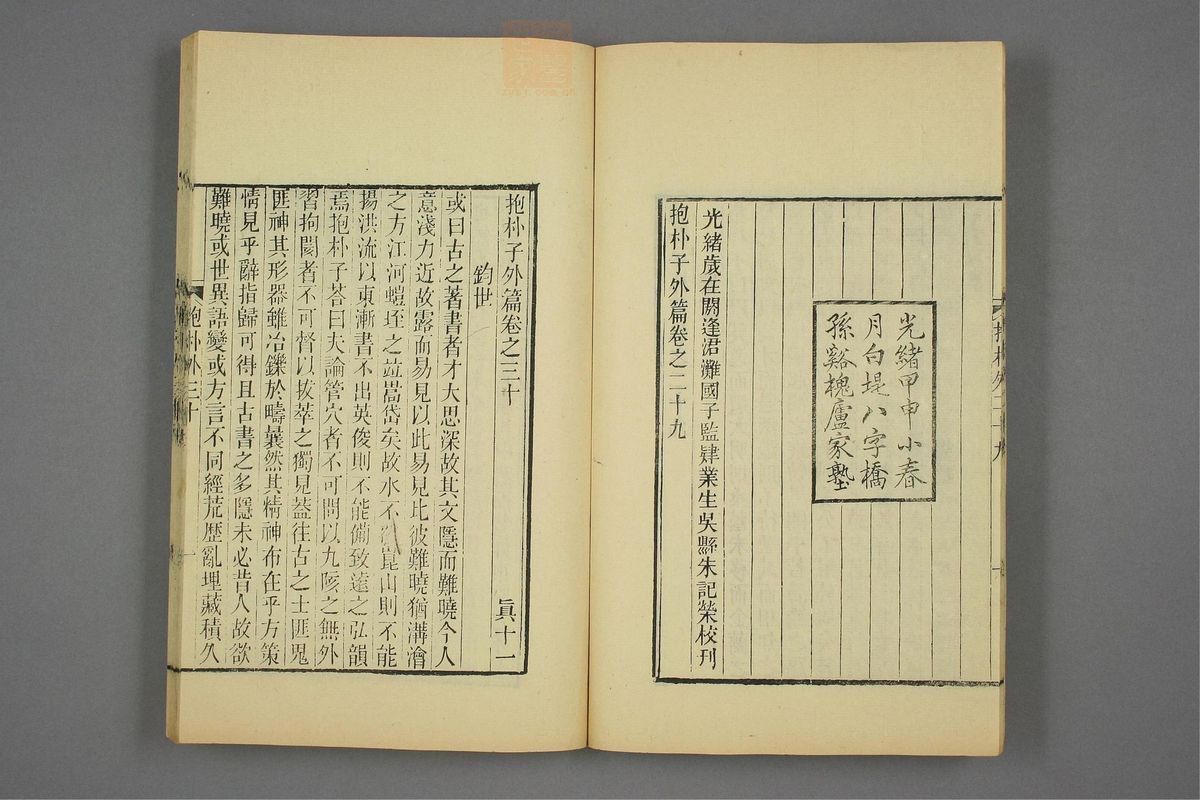 光緒甲申小春
月白堤八字橋
孫谿槐廬家塾
光緒歲在閼逢涒灘國子監肄業生吳縣朱記榮校刊
抱朴子外篇卷之二十九
抱朴子外篇卷之三十
鈞世
眞十一
或曰古之著書者才大思深故其文隱而難曉今人
意淺力近故露而易見以此易見比彼難曉猶溝澮
之方江河螘垤之並嵩岱矣故水不崑山則不能
揚洪流以東漸書不出英俊則不能備致遠之弘韻
焉抱朴子荅曰夫論管穴者不可問以九陔之無外
習拘閡者不可督以拔萃之獨見葢往古之士匪鬼
匪神其形器雖冶鑠於疇曩然其精神布在乎方策
情見乎辭指歸可得且古書之多隱未必昔人故欲
難曉或世異語變或方言不同經荒歷亂埋藏積久
抱朴外三十
一